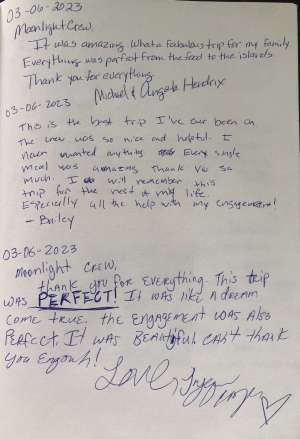 03-06-2023
Moonlight Crew,
It was amazing. What a fabulous trip for my family.
Everything was perfect from the food to the islands.
Thank you for everything
Michael & Angela Hendrix
03-06-2023
This is the best trip I've our been on
The crew was so nice and helpful. I
never wanted anything. Every single
meal was amazing. Thank you so
much. I will remember this
trip for the rest of my life
Especially all the help with my engagement!
- Bailey
03-06-2023
moonlight CREW,
thank you FOR everything. This trip
WAS PERFECT! It was like a dream
come true. the engagement was also
Perfect. It was Beautiful. can't thank
you Enough!
Love,